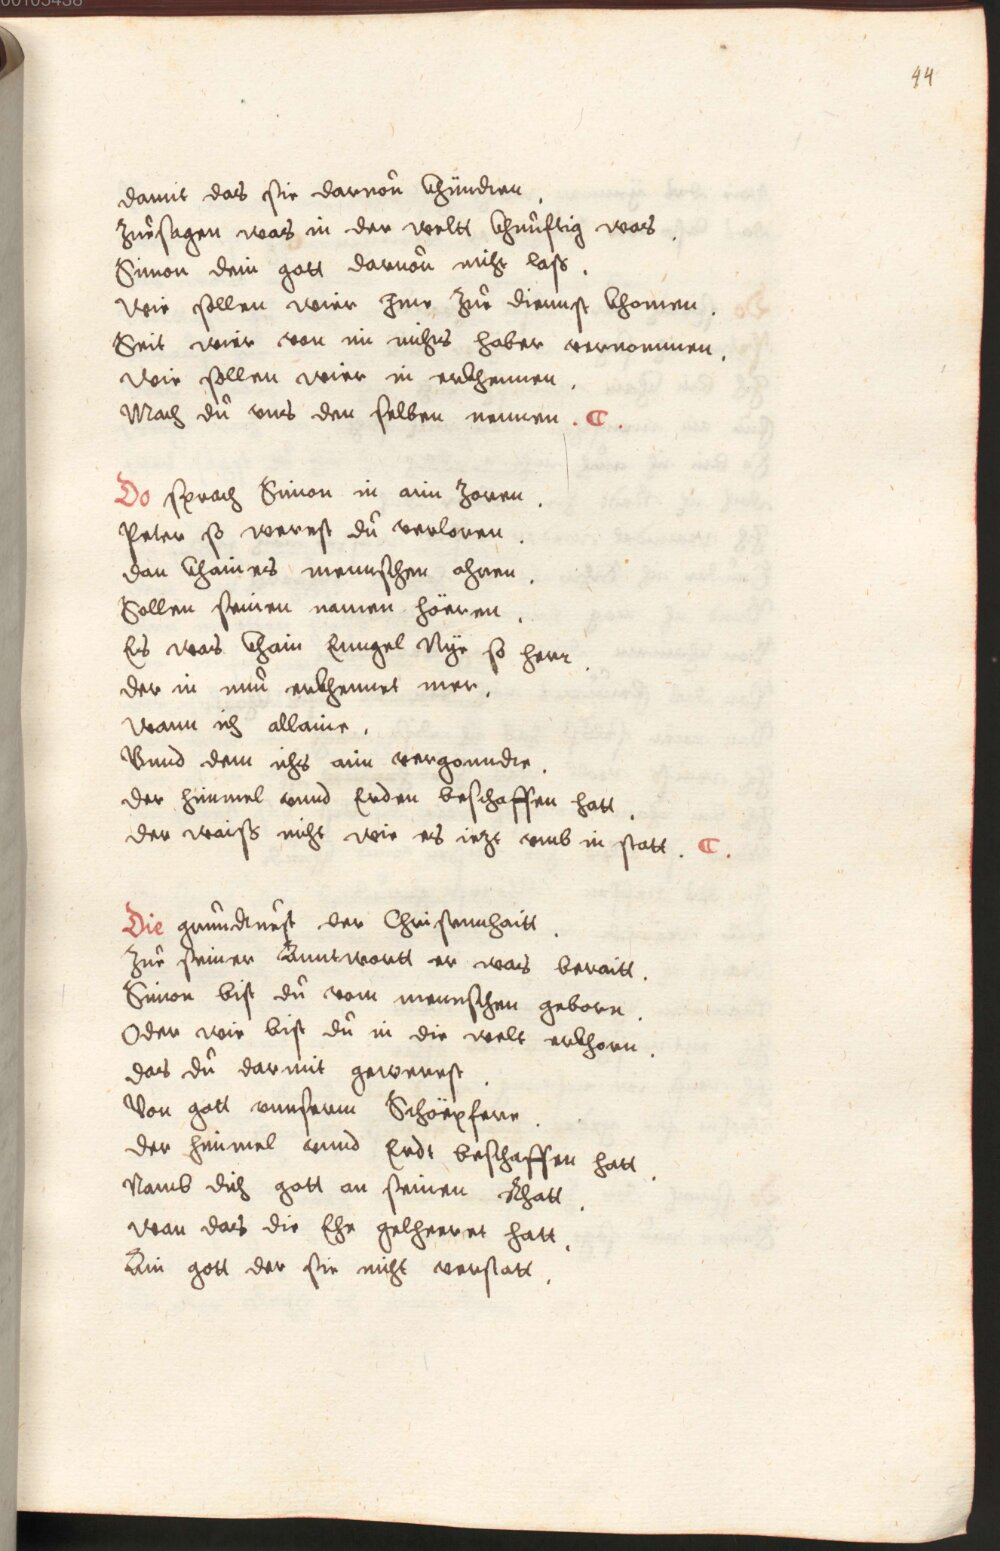 44
damit das sie daruon khündten.
Zuèsagen was in der weltt khnuftig was.
Simon dein gott daruon nicht lass.
Wie sollen wier Ime Zue diennst khomen.
Seit wier von im nichts haben vernommen.
Wie sollen wier in erkhennen.
Mach du vns den selben nennen. C.
Do sprach Simon in aim Zoren.
Peter so werest du verloren.
dan khaines mennschen ohren.
Sollen seinen namen höeren.
Es was khain Enngel Nye so herr.
der in nun erkhennet mer.
wann ich allaine.
Vnnd dem ichs aim vergonndte.
der himmel vnnd Erden beschaffen hatt.
der waiss nicht wie es ietzt vmb in statt. C.
Die grundtuest der Christennhaitt.
Zue seiner Anntwortt er was beraitt.
Simon bist du vom mennschen geborn.
Oder wie bist du in die welt erkhorn.
das du darmit gewerest.
Von gott vnnserm Schöepferr.
der himmel vnnd Erdt beschaffen hatt.
Namb dich gott an seinen Rhatt.
wan das die Ehe gelheeret hatt.
Ain gott der sie nicht verstatt.